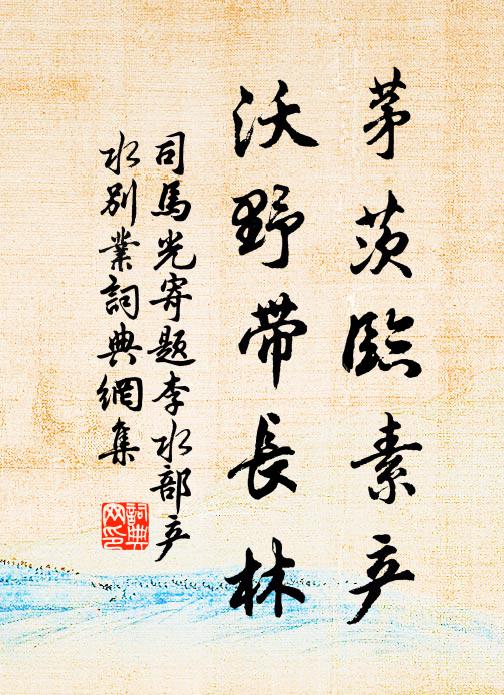 茅茨臨素产
沃野帶長林
司馬光寄題李水部产
水別業詞典網集
詞典
网印